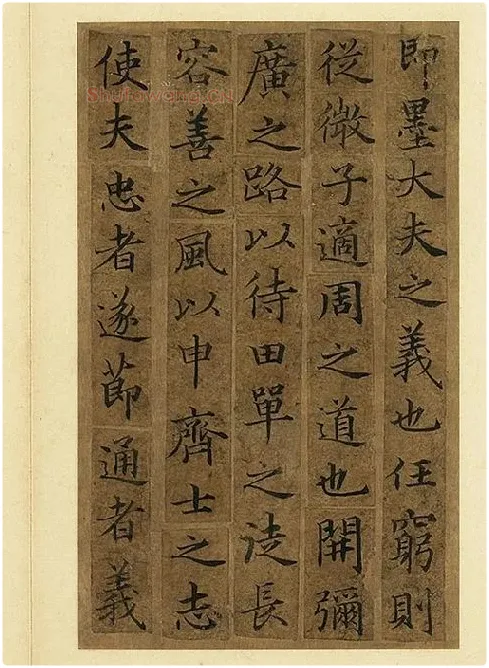 即墨大夫之義也任窮則
從微子適周之道也開彌
廣之路以待田單之徒長
容善之風以申齊士之志
使夫忠者遂莭通者義